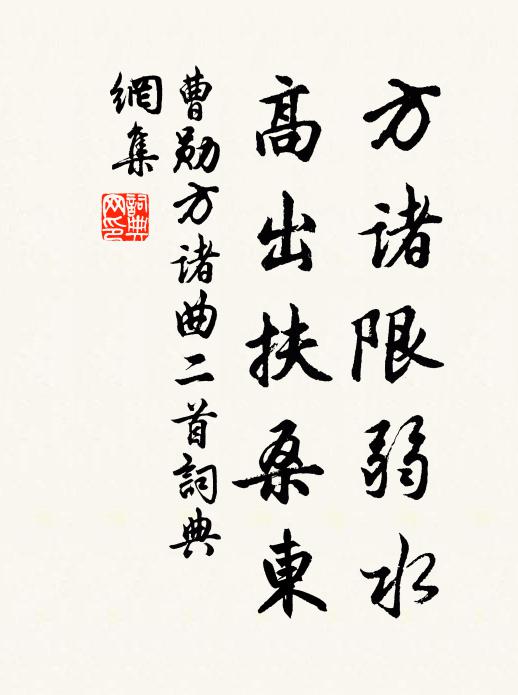 方诸限弱水
高出扶桑東
曹勋方诸曲二首詞典
網集
詞典
网印